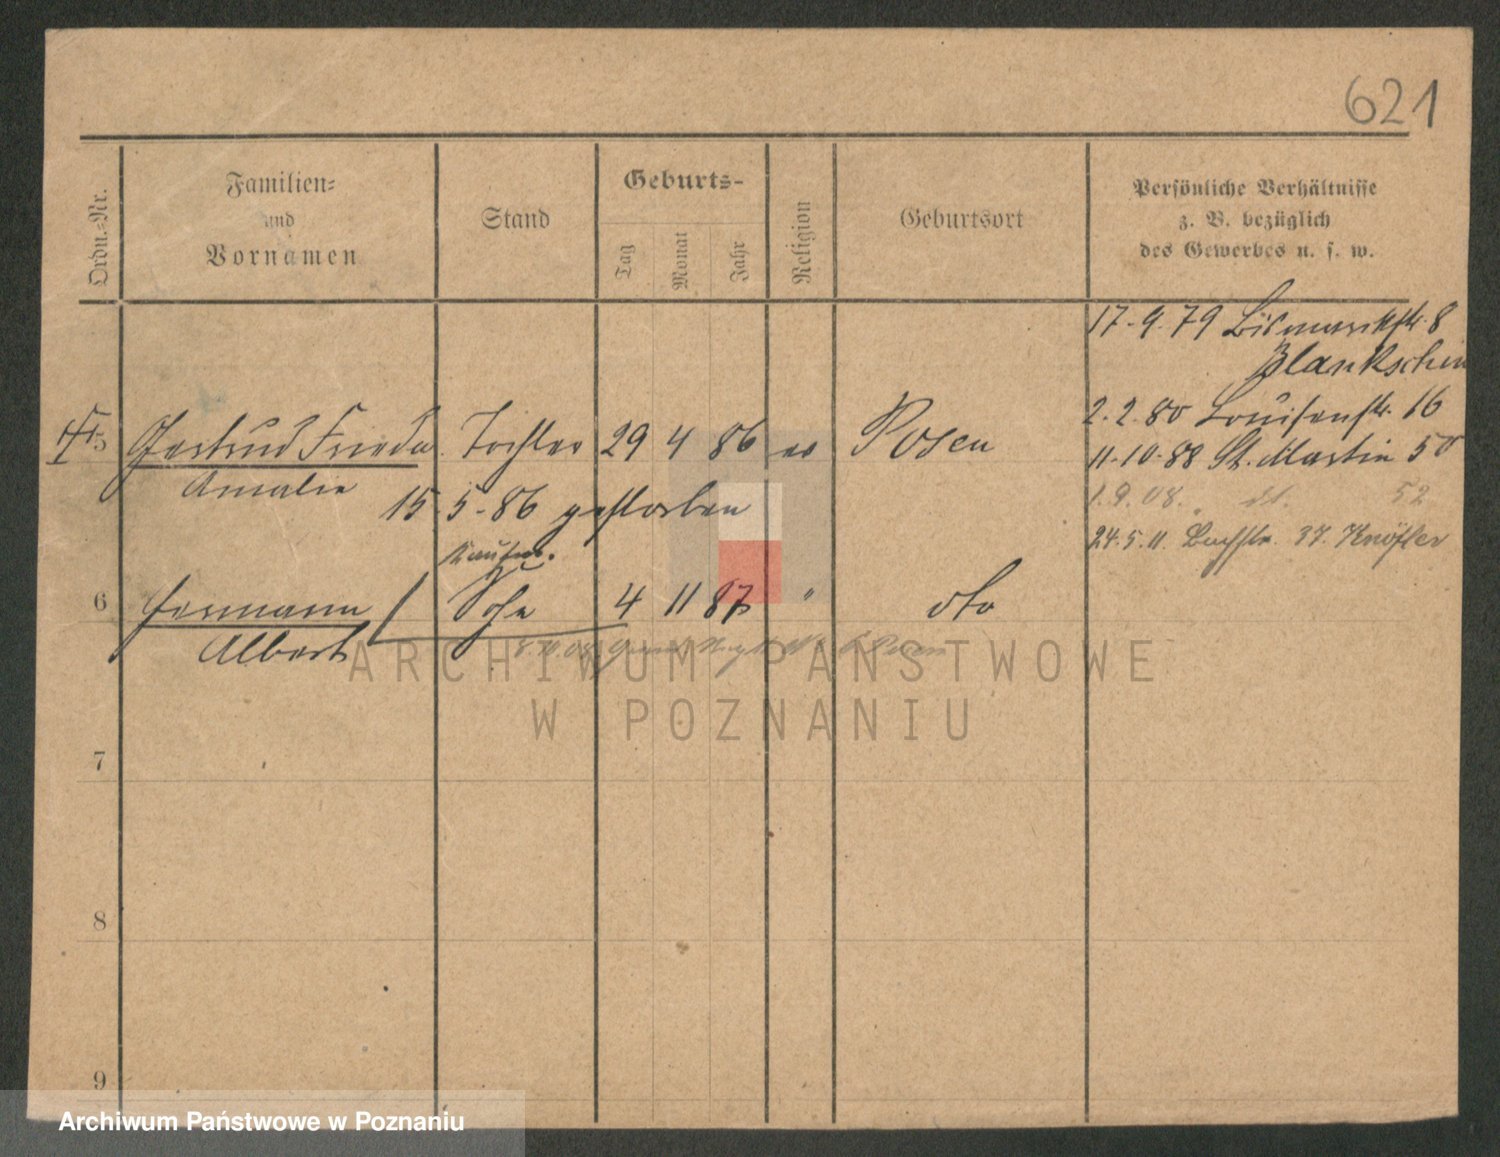 621
Ordn.-Nr.
Familien-
und
Vornamen
Stand
Geburts-
Tag
Monat
Jahr
Religion
Geburtsort
Persönliche Verhältnisse
z. B. bezüglich
des Gewerbes u. s. w.
17.9.79 Bismarckstr. 8
2.2.80 Louisenstr. 16
5 Gertrud Frieda Tochter 29 4 86 ev Posen
11.10.88 St. Martin 50
Amalie
1.9.08. dt. 52
15.5.86 gestorben
24.5.11. Bachstr. 37. Knöfler
Kaufm.
6 Hermann Sohn 4 11 87 " dto
Albert
ARCHIWUM PAŃSTWOWE
W POZNANIU
7
8
9
Archiwum Państwowe w Poznaniu